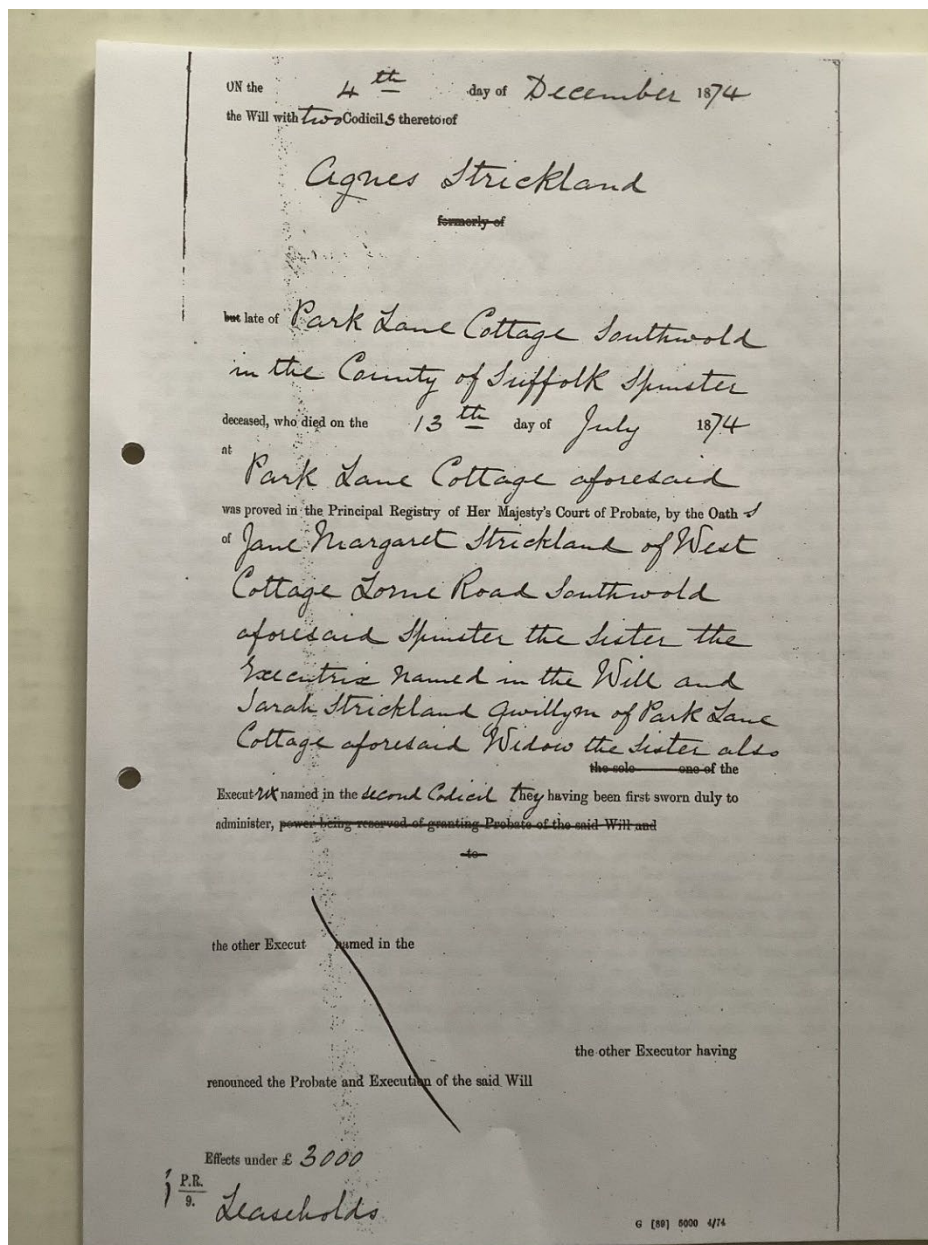 ON the 4th day of December 1874
the Will with two Codicils thereto of
Agnes Strickland
formerly of
but late of Park Lane Cottage Southwold
in the County of Suffolk Spinster
deceased, who died on the 13th day of July 1874
at
Park Lane Cottage aforesaid
was proved in the Principal Registry of Her Majesty's Court of Probate, by the Oath s
of Jane Margaret Strickland of West
Cottage Lorne Road Southwold
aforesaid Spinster the Sister the
Executrix named in the Will and
Sarah Strickland Gwillym of Park Lane
Cottage aforesaid Widow the Sister also
the sole one of the
Executrix named in the second Codicil they having been first sworn duly to
administer, power being reserved of granting Probate of the said Will and
to
the other Execut named in the
the other Executor having
renounced the Probate and Execution of the said Will
Effects under £ 3000
P.R.
9.
Leaseholds
G [89] 5000 4/74